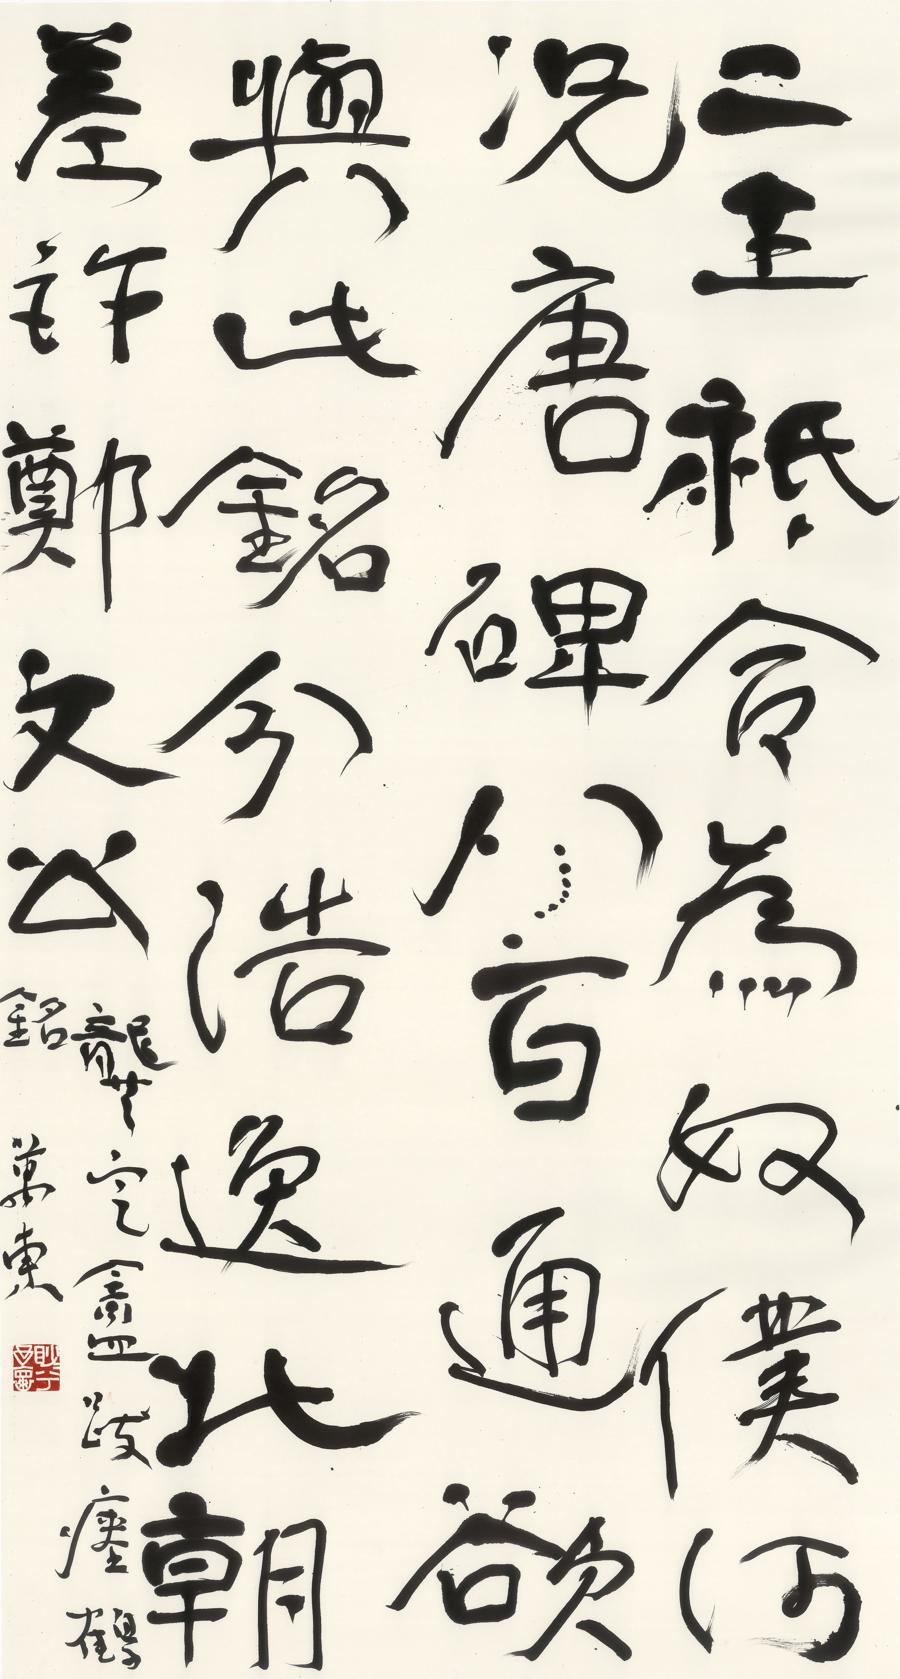 二王祇合為奴僕何
況唐碑八百通欲
與此銘分浩逸北朝
差許鄭文公
龔定盦跋瘞鶴
銘 万東